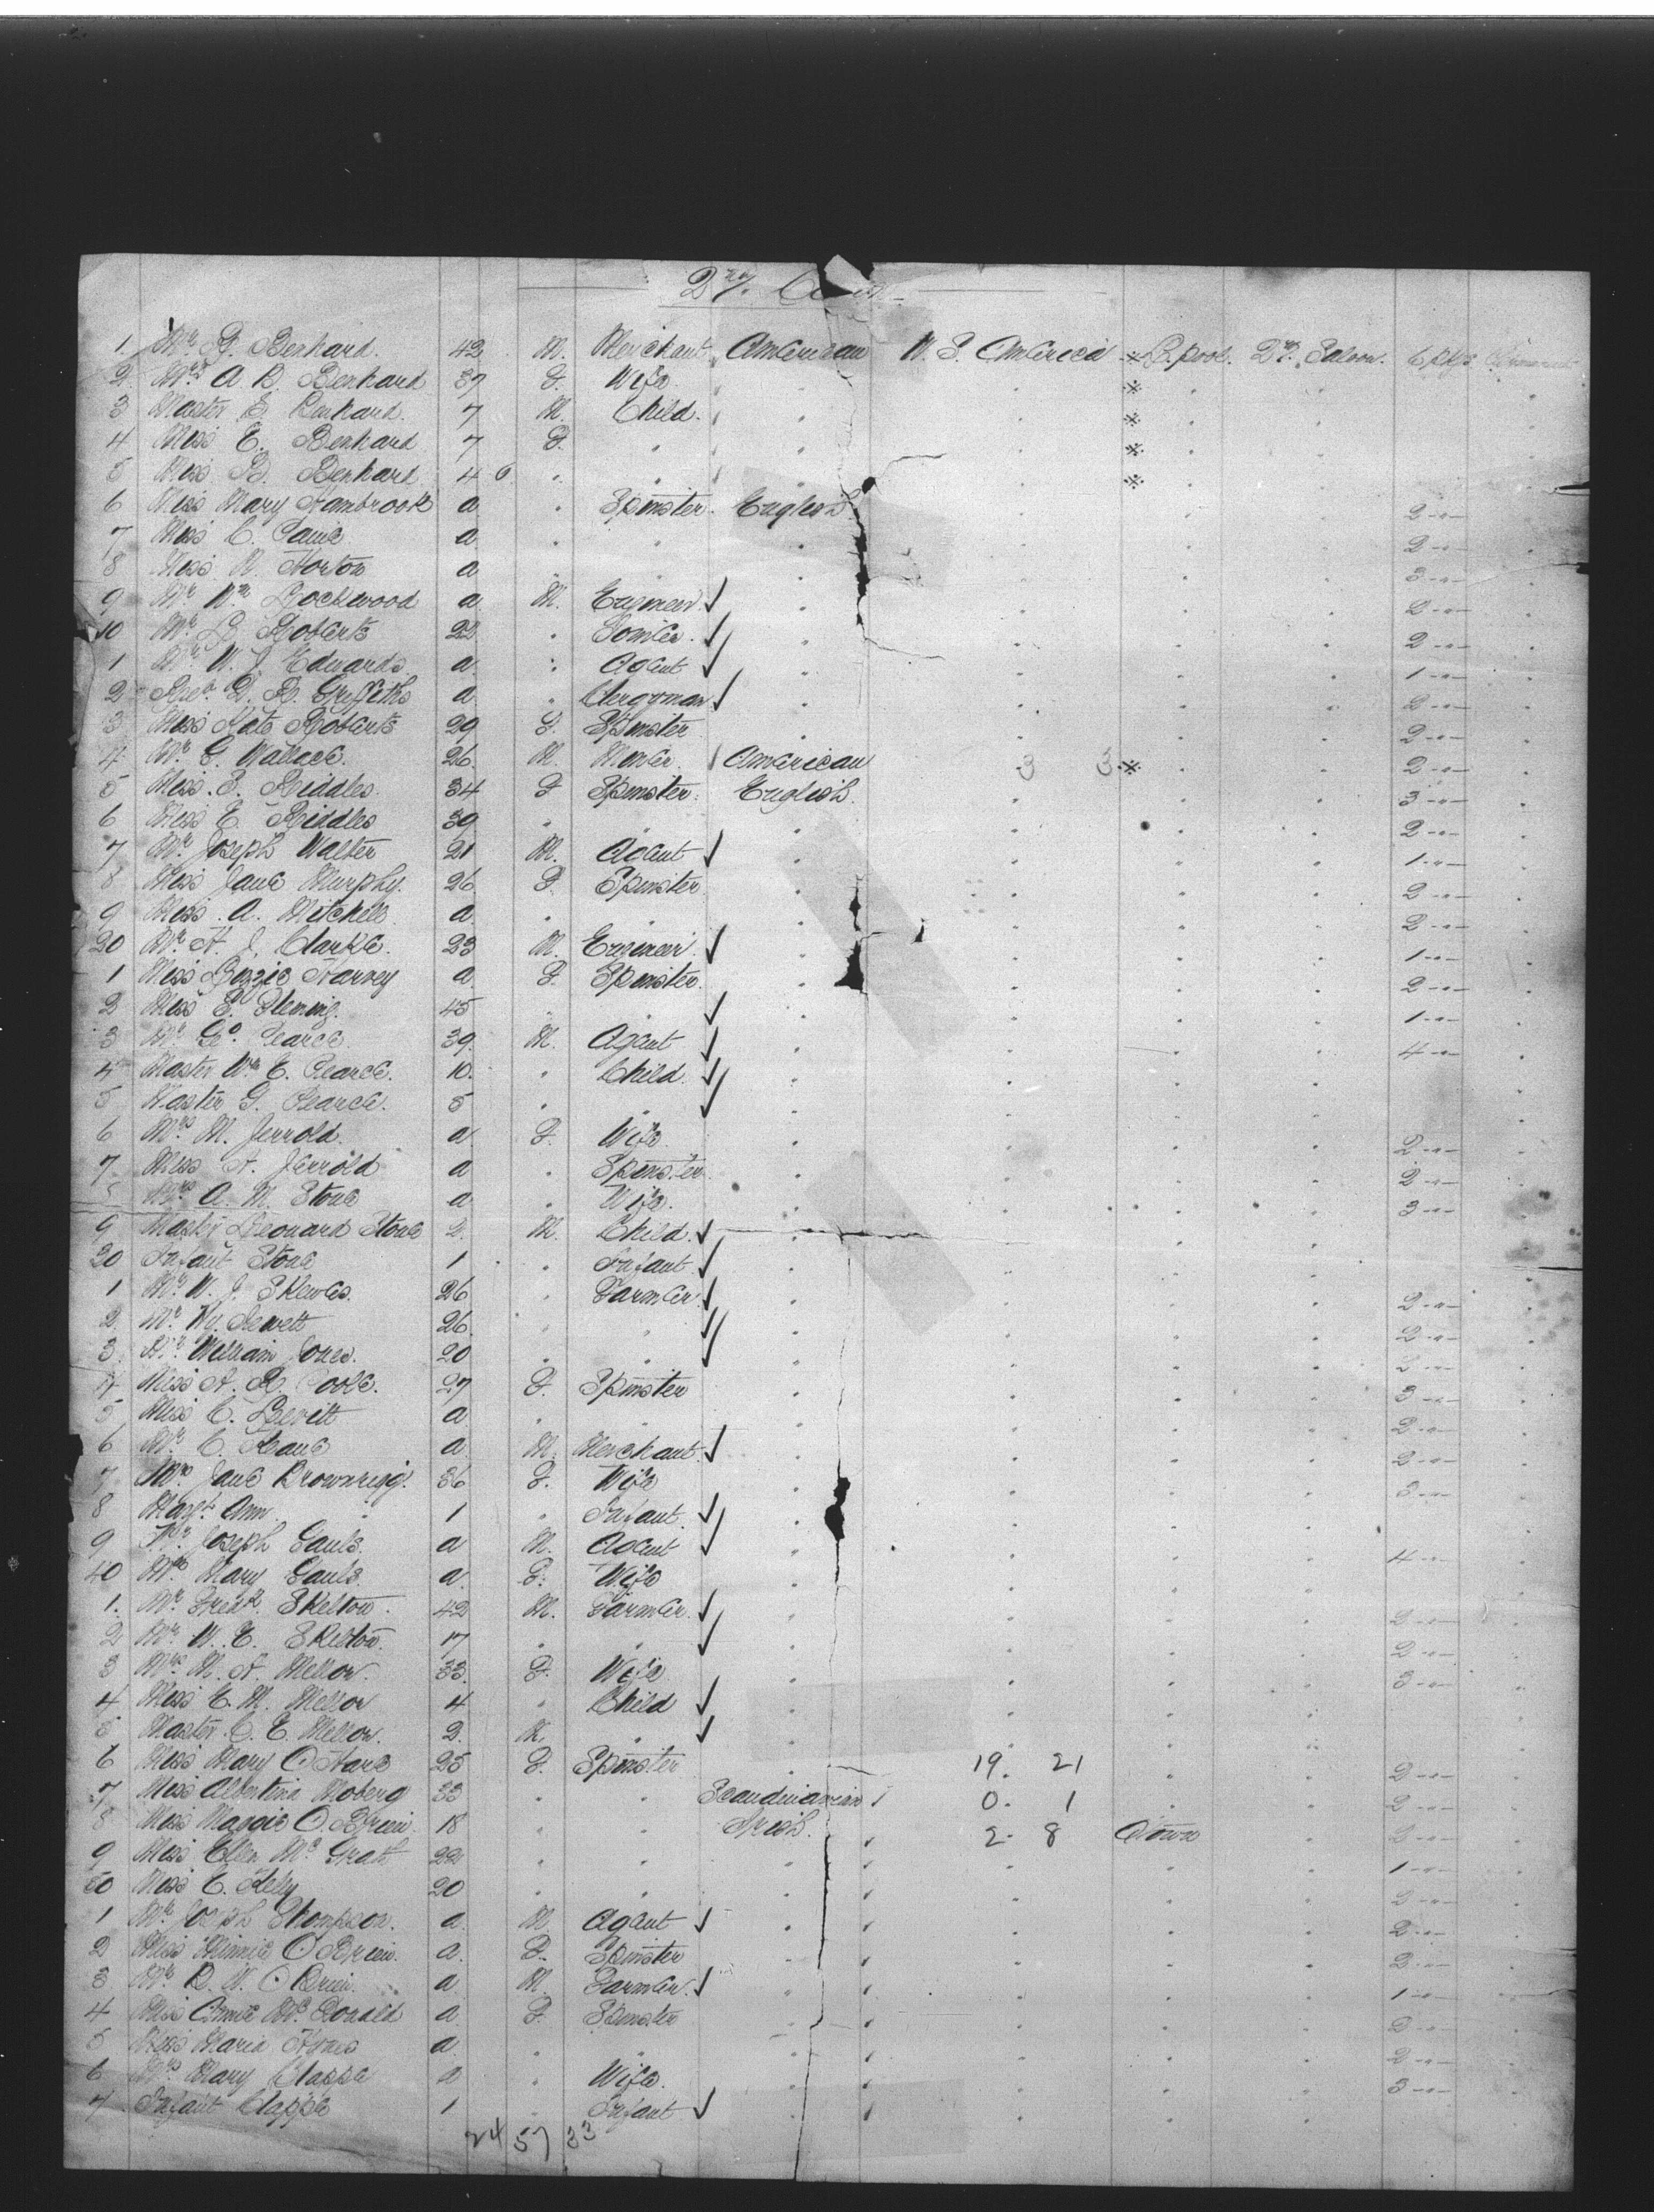 2nd.
1. Mr. B. Benhard. 42 M. Merchant American U. S. America L.pool. 2nd. Saloon. 6 pkgs
2. Mrs A. B. Benhard 37 F. Wife
3 Master E. Benhard. 7 M. Child.
4 Miss E. Benhard 7 F. "
5 Miss B. Benhard 4 6 "
6 Miss Mary Hambrook a " Spinster English 2 - " -
7 Miss C. a " " 2 - " -
8 Miss R. Horton a " " 3 - " -
9 Mr Wm Lockwood a M. Engineer 2 - " -
10 Mr L. Roberts 22 " 2 - " -
1 Mr W. J. Edwards a " Agent 1 - " -
2 Rev. D. R. Griffiths a " Clergyman 2 - " -
3 Miss Kate Roberts 29 F. Spinster 2 - " -
4 Mr G. Wallace. 26 M. Miner. American 3 3 2 - " -
5 Miss. E. Riddles. 34 F Spinster. English. 3 - " -
6 Miss E. Riddles 39 " " 2 - " -
7 Mr. Joseph Walter 21 M. Agent 1 - " -
8 Miss Jane Murphy. 26 F. Spinster 2 - " -
9 Miss. A. Mitchell a " " 2 - " -
20 Mr H. J. Clarke. 23 M. Engineer 1 - " -
1 Miss Lizzie Harvey a F. Spinster. 2 - " -
2 Miss E. Fleming. 45 " " 1 - " -
3 Mr Geo. Pearce 39. M. Agent 4 - " -
4 Master Wm E. Pearce. 10. " Child.
5 Master G. Pearce. 5 " "
6 Mrs M. Jerrold. a F. Wife 2 - " -
7 Miss A. Jerrold a " Spinster. 2 - " -
Mrs A. M. Stone a " Wife. 3 - " -
9 Master Leonard Stone 2. M. Child.
30 Infant Stone 1 " Infant
1 Mr W. J. Skewes. 26 " Farmer. 2 - " -
2 Mr Wm. Jewett 26 " " 2 - " -
3 Mr William Jones. 20 " " 2 - " -
4 Miss A. R. 27 F. Spinster 3 - " -
5 Miss E. Levitt a " " 2 - " -
6 Mr C. Kane a M. Merchant. 2 - " -
7 Mrs Jane Brownrigg. 36 F. Wife 3 - " -
8 Margt. Ann. 1 " Infant.
9 Mr Joseph a M. Agent 4 - " -
40 Mrs Mary a. F. Wife
1. Mr Fredk. Skelton. 42 M. Farmer. 2 - " -
2 Mr W. E. Skelton. 17 " " 2 - " -
3 Mrs M. A. Mellor. 33. F. Wife 3 - " -
4 Miss E. M. Mellor 4 " Child
5 Master C. E. Mellor. 2. M. "
6 Miss Mary O'Hare 25 F. Spinster 19. 21 2 - " -
7 Miss Albertina Moberg 33 " " Scandinavian 0. 1 2 - " -
8 Miss Maggie O'Brien 18 " " Irish. 2 - 8 Qtown 2 - " -
9 Miss Ellen McGrath 22 " " 1 - " -
50 Miss C. Kelly 20 " " 2 - " -
1 Mr Joseph Thompson. a. M. Agent 2 - " -
2 Miss Minnie O'Brien. a. F. Spinster 2 - " -
3 Mr R. W. O'Brien. a M. Farmer. 1 - " -
4 Miss Annie McDonald a F Spinster 2 - " -
5 Miss Maria Hynes a " " 2 - " -
6 Mrs Mary Clappe a " Wife. 3 - " -
7 Infant Clappe 1 " Infant
24 57 33